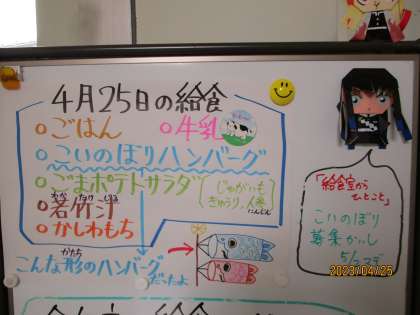 4月25日の給食
ごはん
牛乳
こいのぼりハンバーグ
ごまポテトサラダ
じゃがいも
きゅうり、人参
にんじん
若竹汁
わかたけじる
かしわもち
こんな形のハンバーグ
かたち
だったよ
「給食室から
ひとこと」
こいのぼり
募集かいし
5/2マデ
2023/04/25